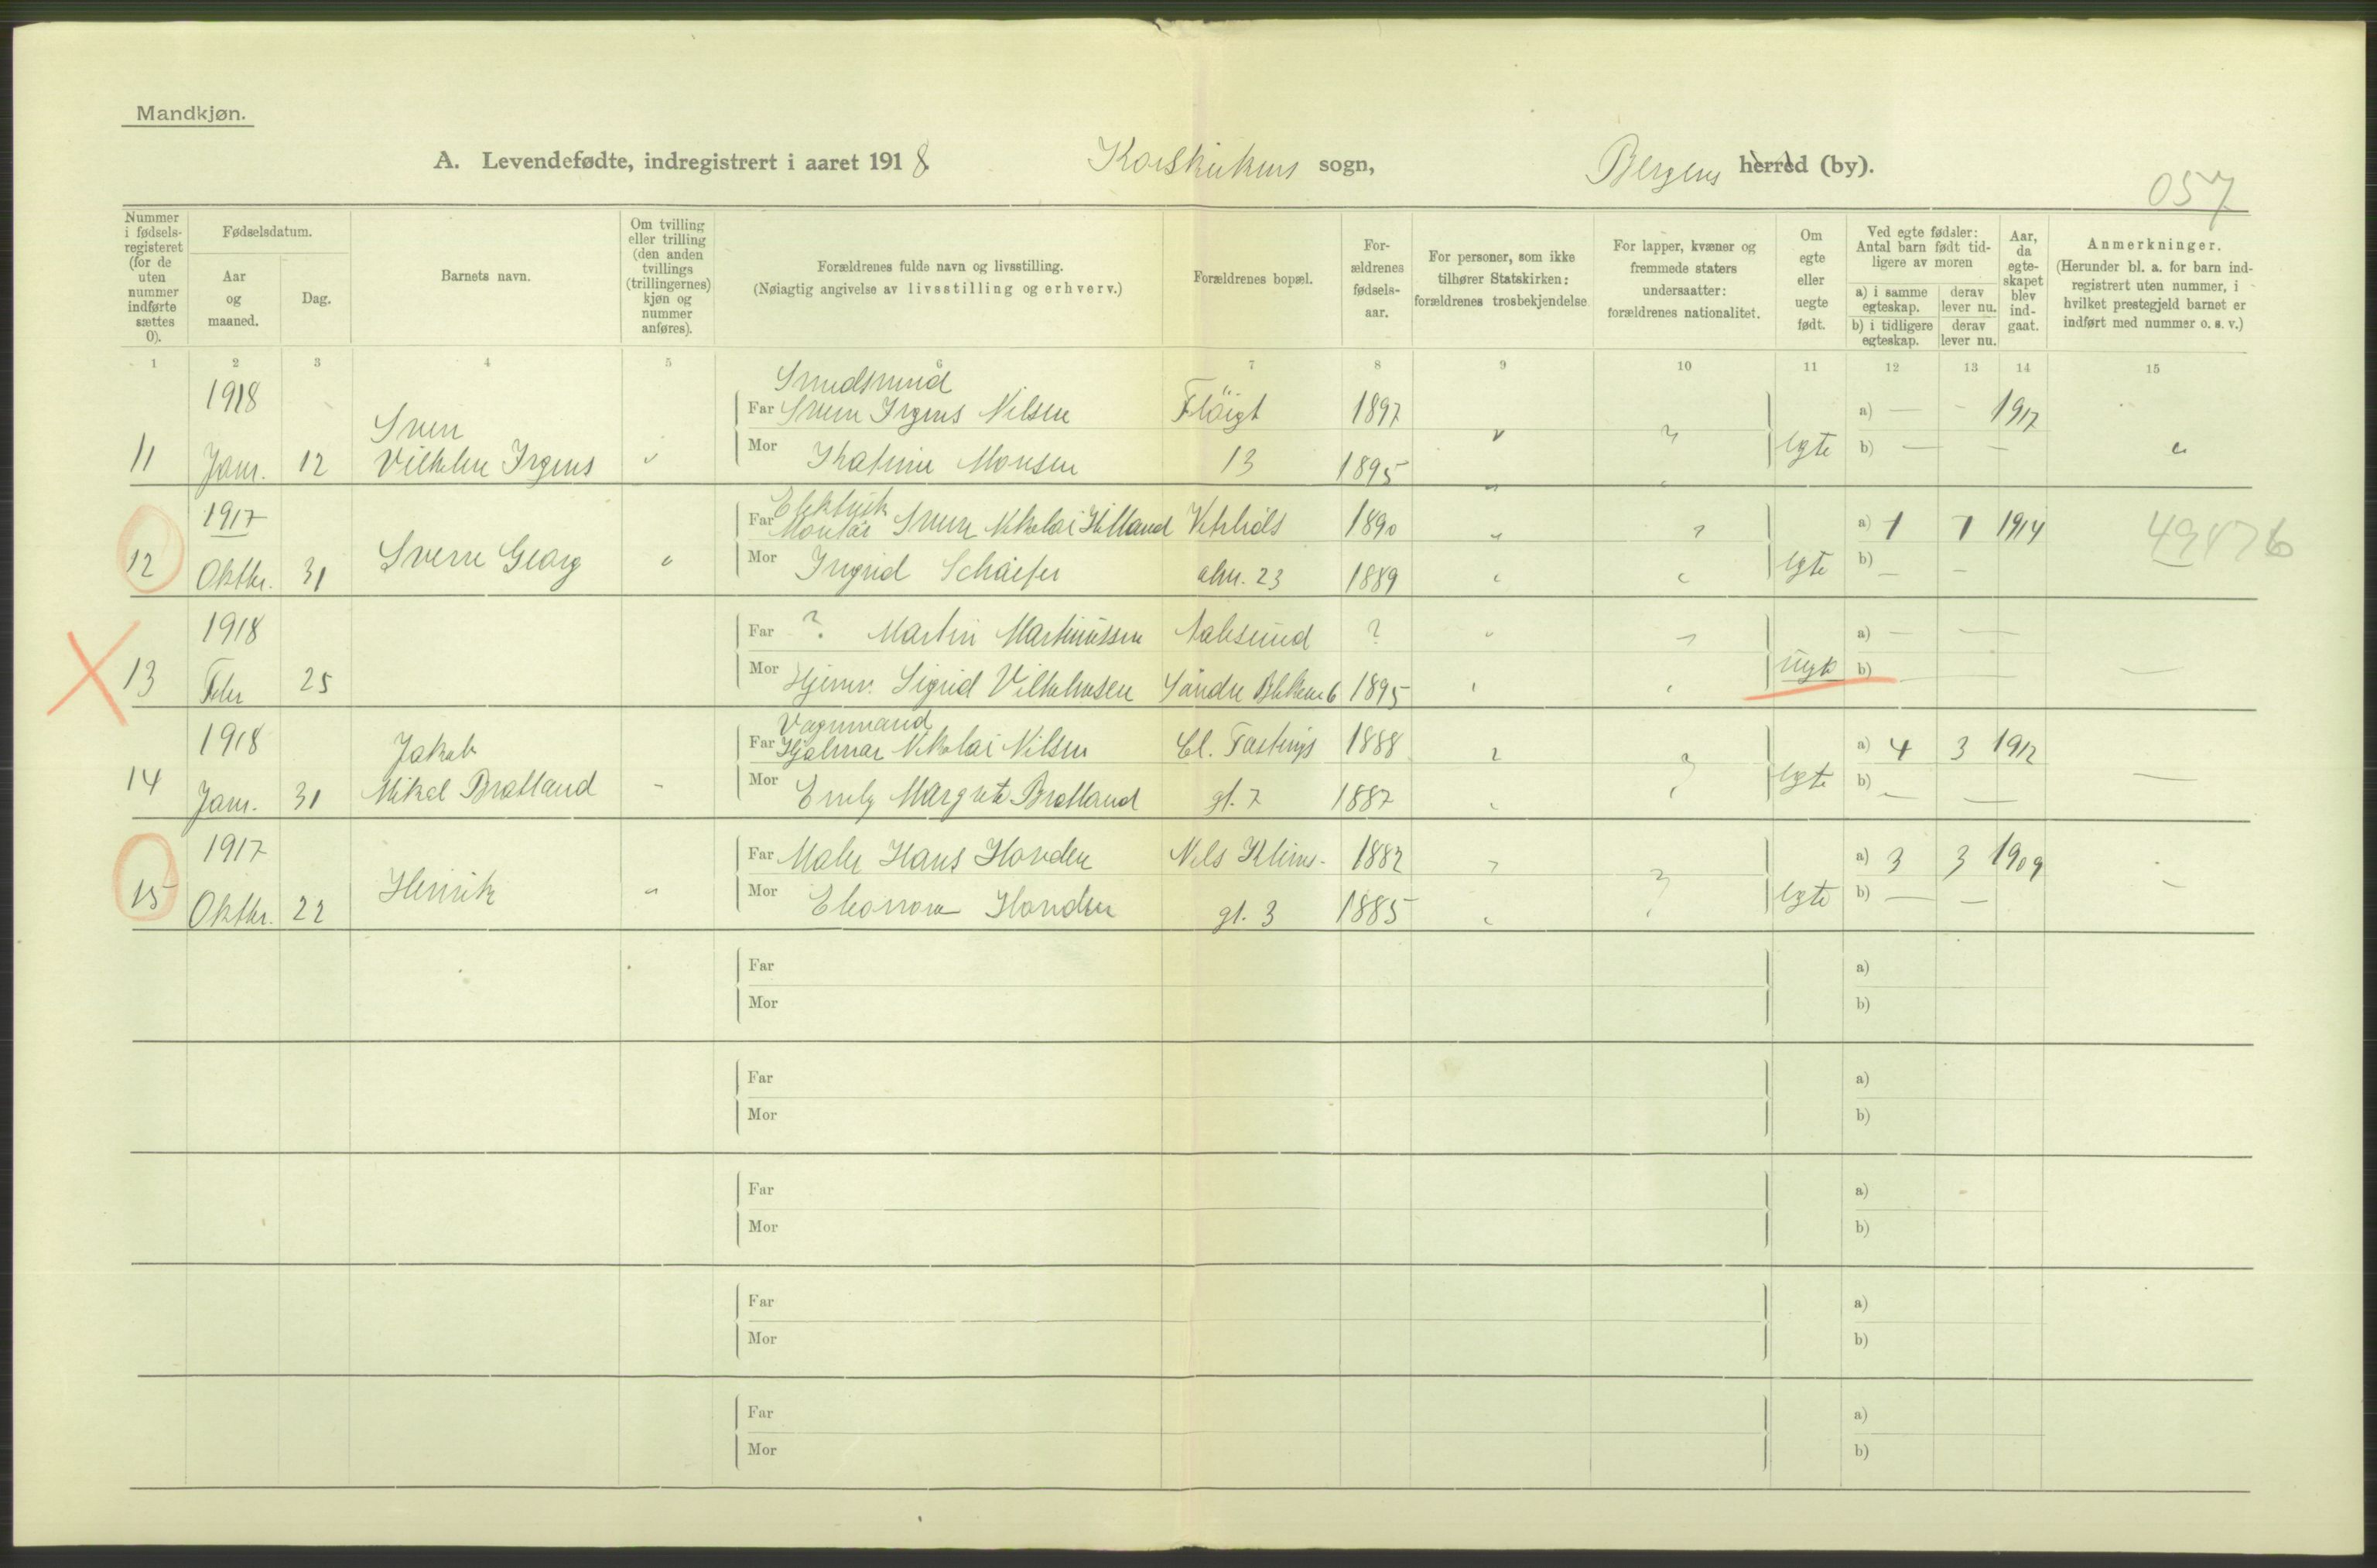 Mandkjøn.
A. Levendefødte, indregistrert i aaret 1918 Korskirkens sogn, Bergens herred (by).
057
Nummer i fødsels-registeret (for de uten nummer indførte sættes 0).
Fødselsdatum.
Aar og maaned.
Dag.
Barnets navn.
Om tvilling eller trilling (den anden tvillings (trillingernes) kjøn og nummer anføres).
Forældrenes fulde navn og livsstilling.
(Nøiagtig angivelse av livsstilling og erhverv.)
Forældrenes bopæl.
For-ældrenes fødsels-aar.
For personer, som ikke tilhører Statskirken: forældrenes trosbekjendelse.
For lapper, kvæner og fremmede staters undersaatter: forældrenes nationalitet.
Om egte eller uegte født.
Ved egte fødsler: Antal barn født tid-ligere av moren
a) i samme egteskap.
derav lever nu.
b) i tidligere egteskap.
derav lever nu.
Aar, da egte-skapet blev ind-gaat.
Anmerkninger.
(Herunder bl. a. for barn ind-registrert uten nummer, i hvilket prestegjeld barnet er indført med nummer o. s. v.)
1 2 3 4 5 6 7 8 9 10 11 12 13 14 15
1918 Smedsvend
Sverr Far Sverr Irgens Nilsen Fløigt 1897 a) — - 1917
11 Janr. 12 Vilhelm Irgens Mor Katrine Monsen 13 1895 egte b) — —
1917 Elektrisk
Far Montør Sverre Nikolai Hilland Vetrlids 1890 a) 1 1 1914 49876
12 Oktbr. 31 Sverre Georg Mor Ingrid Schäefer alm. 23 1889 egte b) — -
1918 Far ? Martin Martinussen Aalesund ? a) — —
13 Febr 25 Mor Hjemv. Sigrid Vilhelmsen Søndre Blekevei 6 1895 uegte b) —
1918 Vognmand
Jakob Far Hjalmar Nikolai Nilsen Cl. Fastings 1888 a) 4 3 1912
14 Janr. 31 Mikal Bratland Mor Emily Margrete Bratland gt. 7 1887 egte b) — —
1917 Far Maler Hans Hovden Nels Klims- 1882 a) 3 3 1909
15 Oktbr. 22 Henrik Mor Eleonora Hovden gt. 3 1885 egte b) — —
Far a)
Mor b)
Far a)
Mor b)
Far a)
Mor b)
Far a)
Mor b)
Far a)
Mor b)